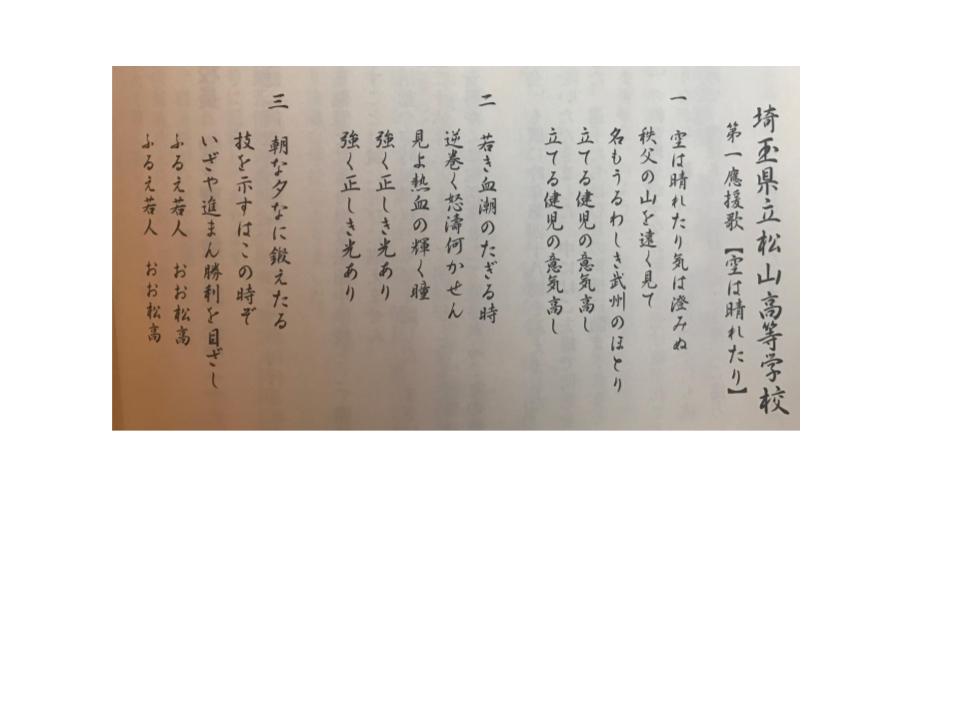 埼玉県立松山高等学校
第一應援歌【空は晴れたり】
一 空は晴れたり気は澄みぬ
秩父の山を遠く見て
名もうるわしき武州のほとり
立てる健児の意気高し
立てる健児の意気高し
二 若き血潮のたぎる時
逆巻く怒濤何かせん
見よ熱血の輝く瞳
強く正しき光あり
強く正しき光あり
三 朝な夕なに鍛えたる
技を示すはこの時ぞ
いざや進まん勝利を目ざし
ふるえ若人 おお松高
ふるえ若人 おお松高